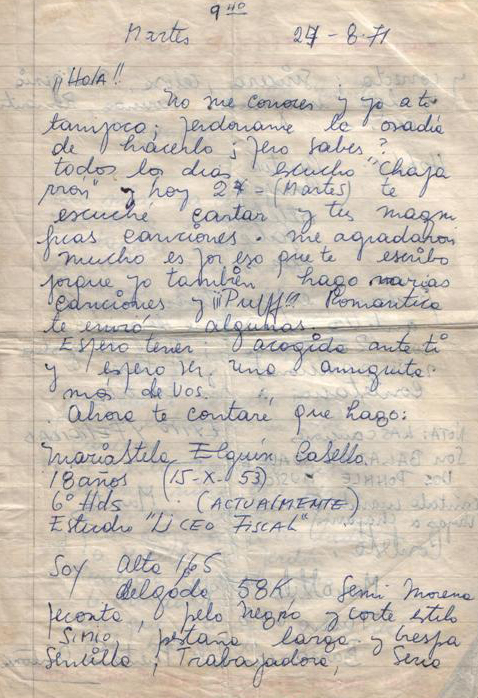 9 40
Martes 24-8-71
¡¡Hola!!
No me conoces y yo a tí
tampoco; perdoname la osadía
de hacerlo; pero sabes?
todos los días escucho "Chaja
rrón" y hoy 24 - (Martes) te
escuché cantar y tus magni
ficas canciones. me agradaron
mucho es por eso que te escribo
porque yo también hago varias
canciones y ¡¡¡Pufff!!! Romantica
te envió algunas.
Espero tener; acogida ante ti
y espero ser, una amiguita
más de vos.
Ahora te contaré, que hago:
María Stela Elguín Casello
18 años (15-X-53)
6º Hds. (ACTUALMENTE)
Estudio "LICEO FISCAL"
Soy Alta 1,65
delgada 58K Semi Morena
pecosita, pelo negro y corte estilo
Simio, pestaña larga y crespa
Sencilla, Trabajadora, Seria